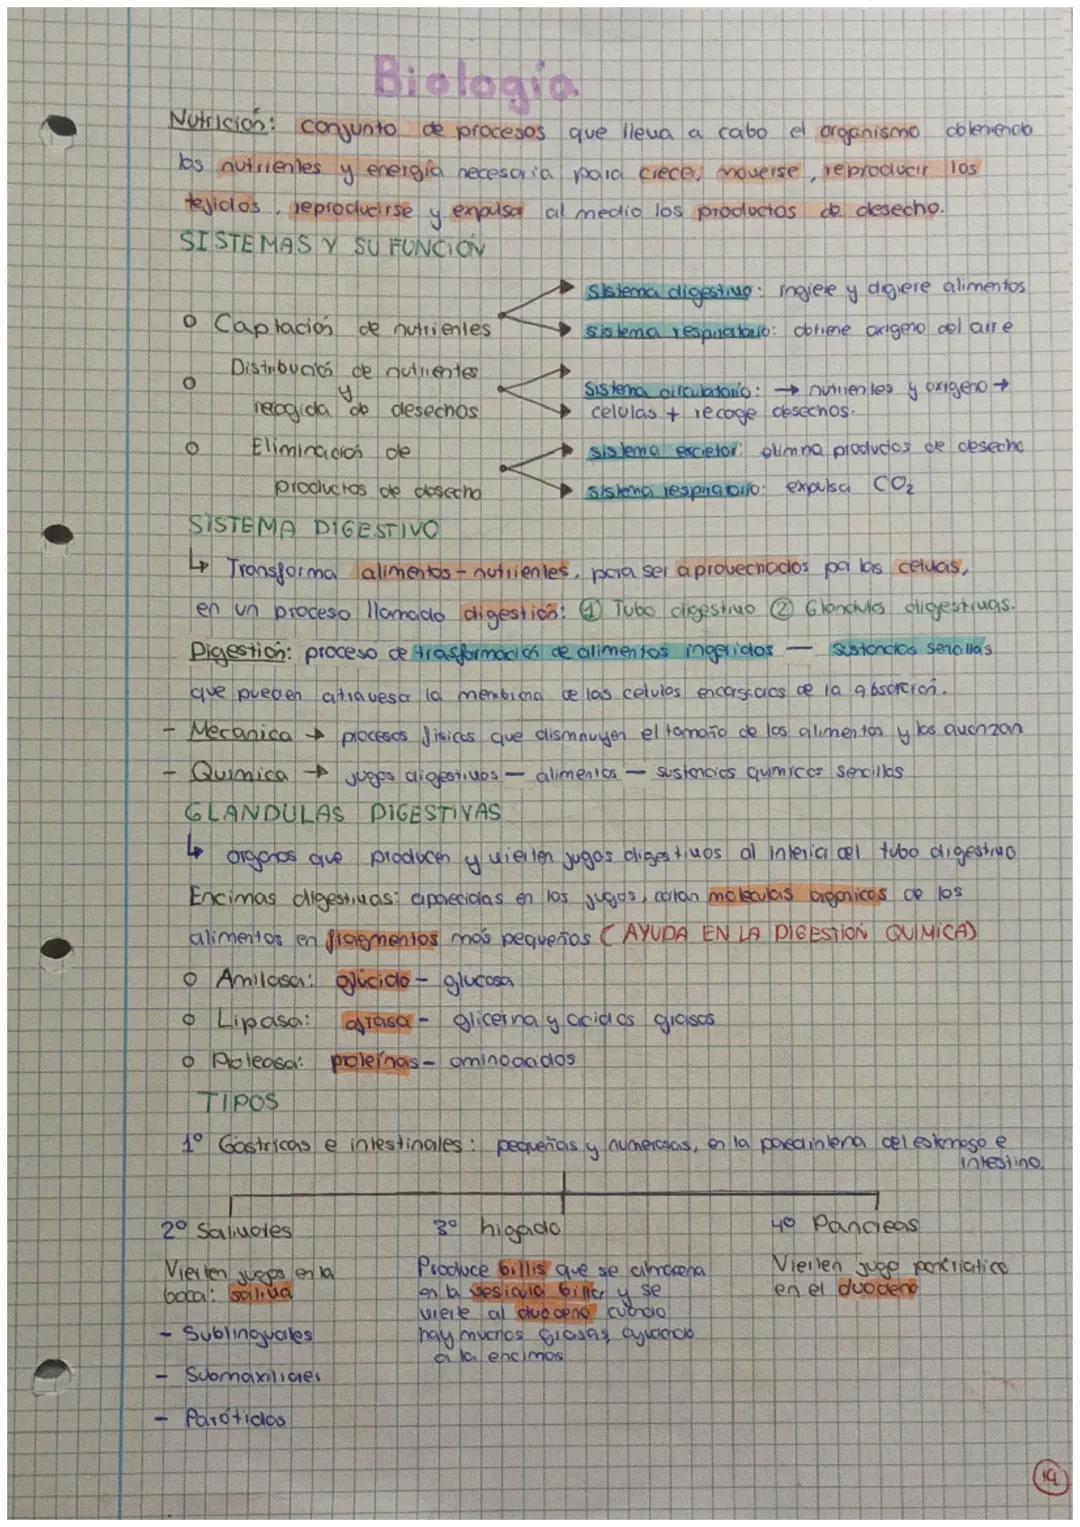 Biología
Nutrición: conjunto de procesos que lleva a cabo el organismo obteniendo
los nutrientes y energía necesaria para crecer, moverse, reproducir los
tejidos, reproducirse y expulsa al medio los productos de desecho.
SISTEMAS Y SU FUNCIÓN
Sistema digestivo: ingiere y digiere alimentos
o Captación de nutrientes
sistema respiratorio: obtiene oxigeno del aire
o Distribución de nutrientes
y
recogida de desechos
Sistema circulatorio: → nutrientes y oxigeno →
celulas + recoge desechos.
o Eliminación de
productos de desecho
sistema excretor: elimina productos de desecho
sistema respiratorio: expulsa CO2
SISTEMA DIGESTIVO
↳ Transforma alimentos - nutrientes, para ser aprovechados por las celulas,
en un proceso llamado digestión: ① Tubo digestivo ② Glandulas digestivas.
Digestión: proceso de trasformación de alimentos ingeridos — sustancias sencillas
que pueden atravesar la membrana de las celulas encargadas de la absorción.
- Mecanica → procesos físicos que disminuyen el tamaño de los alimentos y los avanzan
- Quimica → jugos digestivos — alimentos — sustancias quimicas sencillas
GLANDULAS DIGESTIVAS
↳ organos que producen y vierten jugos digestivos al interior del tubo digestivo
Encimas digestivas: aparecidas en los jugos, cortan moleculas organicas de los
alimentos en fragmentos más pequeños (AYUDA EN LA DIGESTIÓN QUIMICA)
o Amilasa: glúcido - glucosa
o Lipasa: grasa - glicerina y acidos grasos
o Proteasa: proteínas - aminoacidos
TIPOS
1º Gástricas e intestinales: pequeñas y numerosas, en la pared interna del estomago e
intestino.
2º Salivales
3º higado
4º Pancreas
Vierten jugos en la
boca: saliva
- Sublinguales
- Submaxilares
- Parótidas
Produce billis que se almacena
en la vesicula biliar y se
vierte al duodeno cuando
hay muchas grasas, ayudando
a la encimas
Vierten jugo pancriatico
en el duodeno